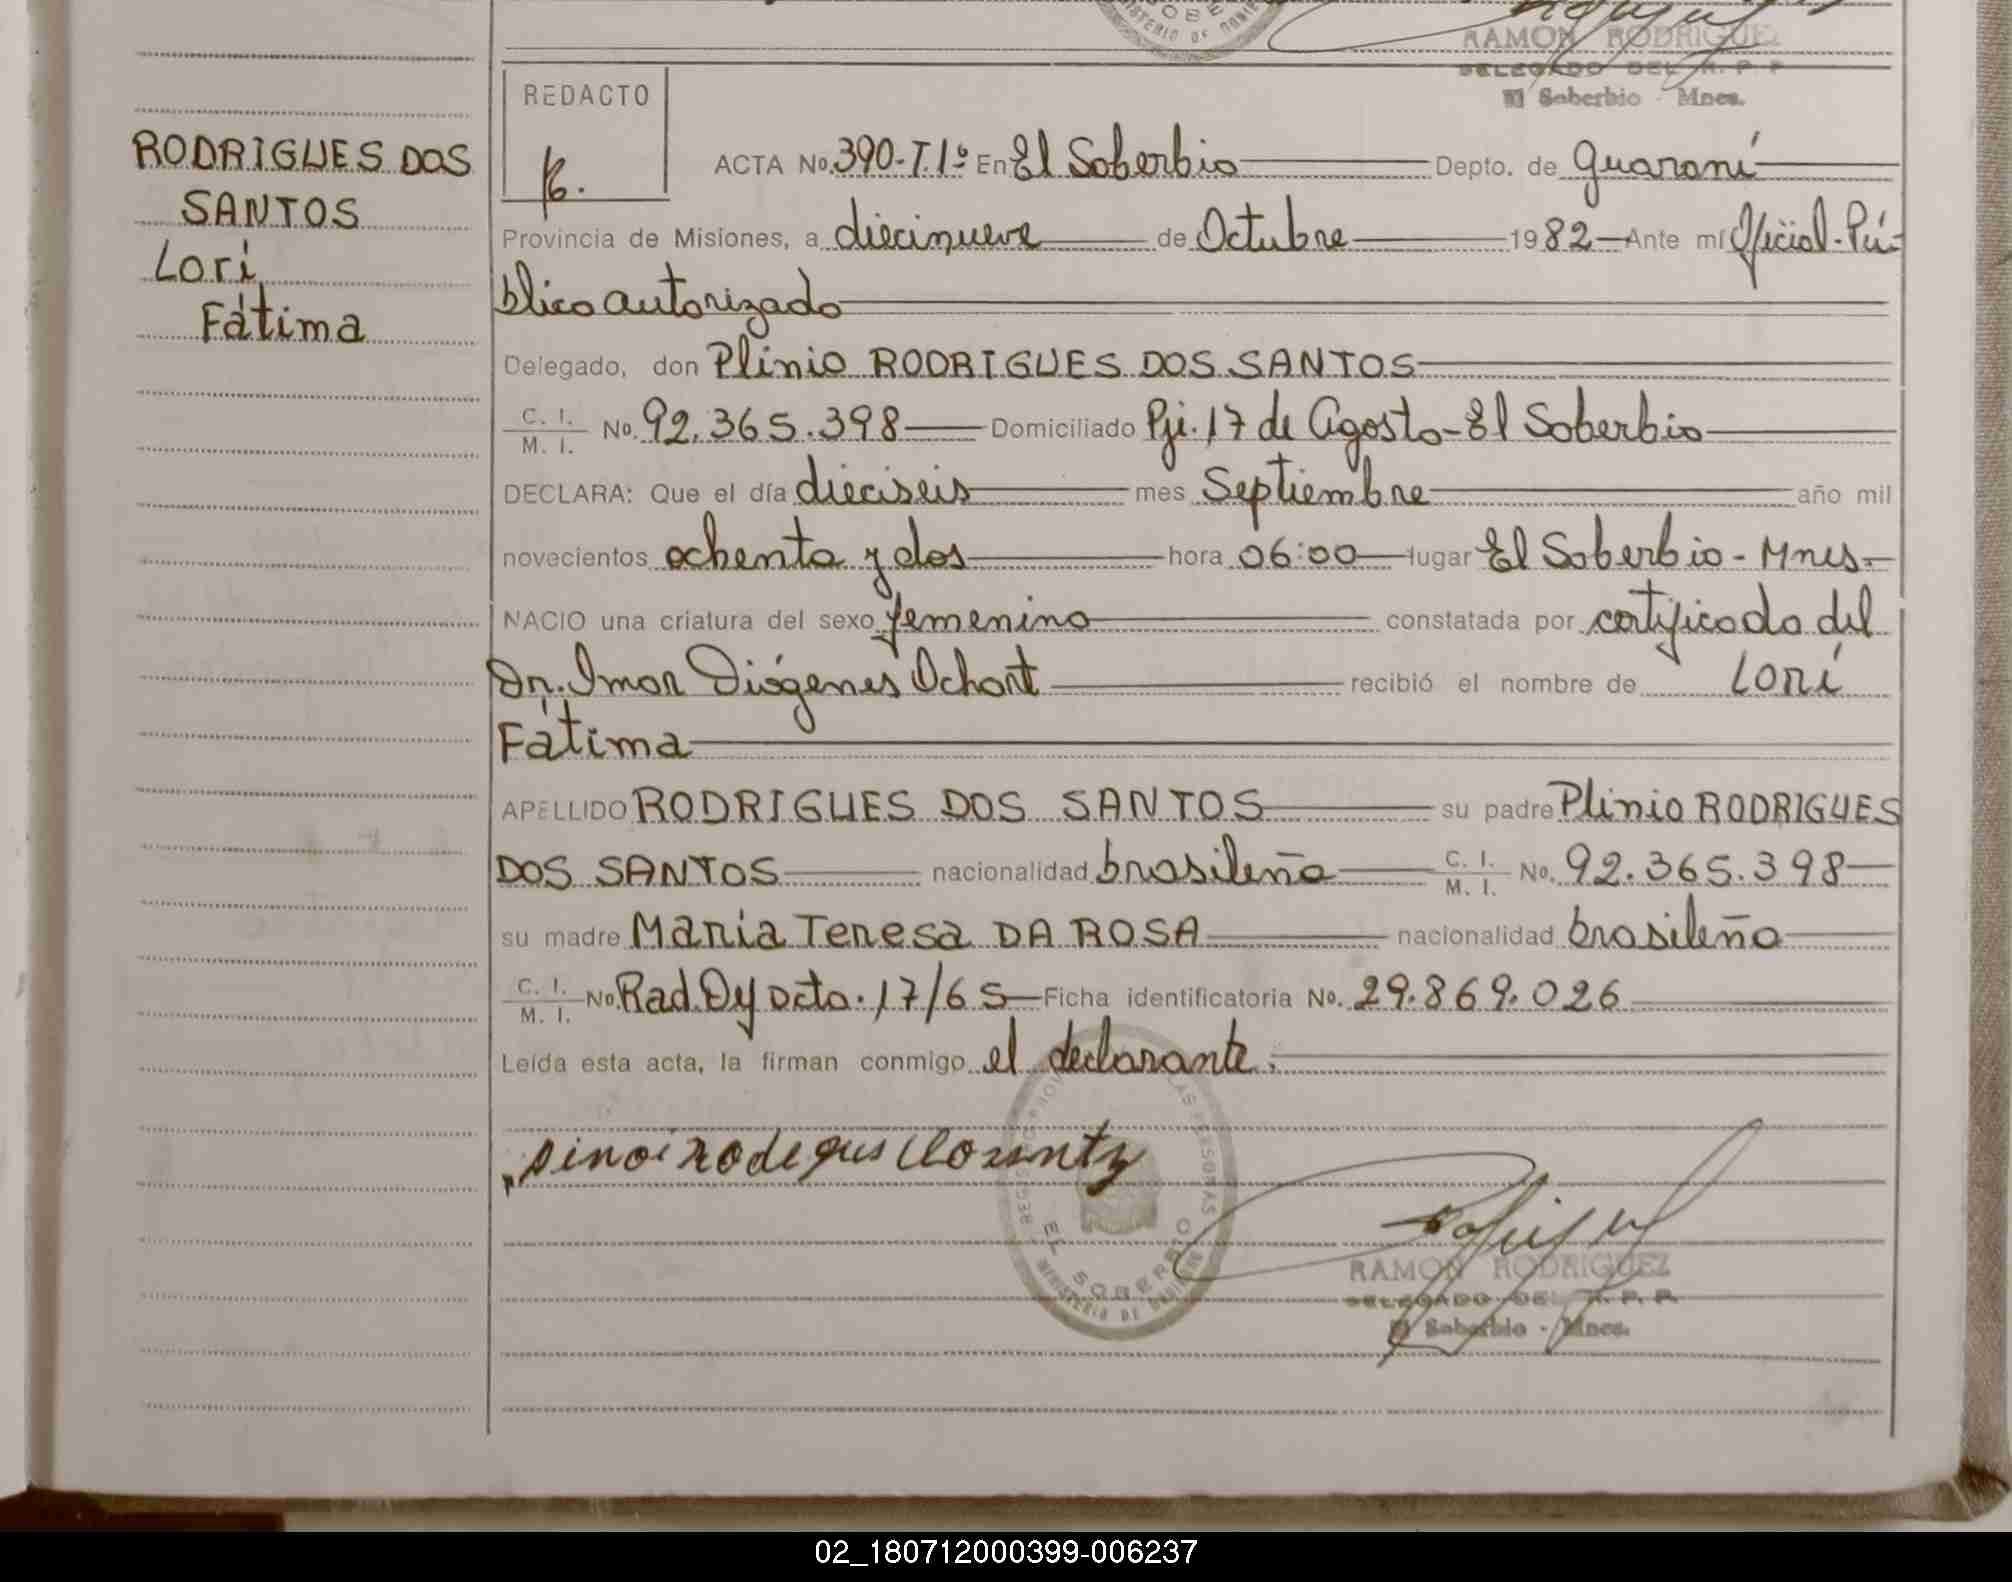 RAMON RODRIGUEZ
DELEGADO DEL R. P. P.
El Soberbio - Mnes.
REDACTO
RODRIGUES DOS
SANTOS
Lorí
Fátima
ACTA No. 390-T.1º En El Soberbio Depto. de Guaraní
Provincia de Misiones, a diecinueve de Octubre 1982 Ante mí Oficial Pú-
blico autorizado
Delegado, don Plinio RODRIGUES DOS SANTOS
C. I.
M. I. No. 92.365.398 Domiciliado Pji. 17 de Agosto - El Soberbio
DECLARA: Que el día dieciseis mes Septiembre año mil
novecientos ochenta y dos hora 06:00 lugar El Soberbio - Mnes.
NACIO una criatura del sexo femenino constatada por certificado del
Dr. Imar Diógenes Ochart recibió el nombre de Lorí
Fátima
APELLIDO RODRIGUES DOS SANTOS su padre Plinio RODRIGUES
DOS SANTOS nacionalidad brasileña C. I. M. I. No. 92.365.398
su madre Maria Teresa DA ROSA nacionalidad brasileña
C. I. M. I. No. Rad. Dy Dcto. 17/65 Ficha identificatoria No. 29.869.026
Leída esta acta, la firman conmigo el declarante.
EL SOBERBIO
MINISTERIO DE
RAMON RODRIGUEZ
DELEGADO DEL R. P. P.
El Soberbio - Mnes.
02_180712000399-006237